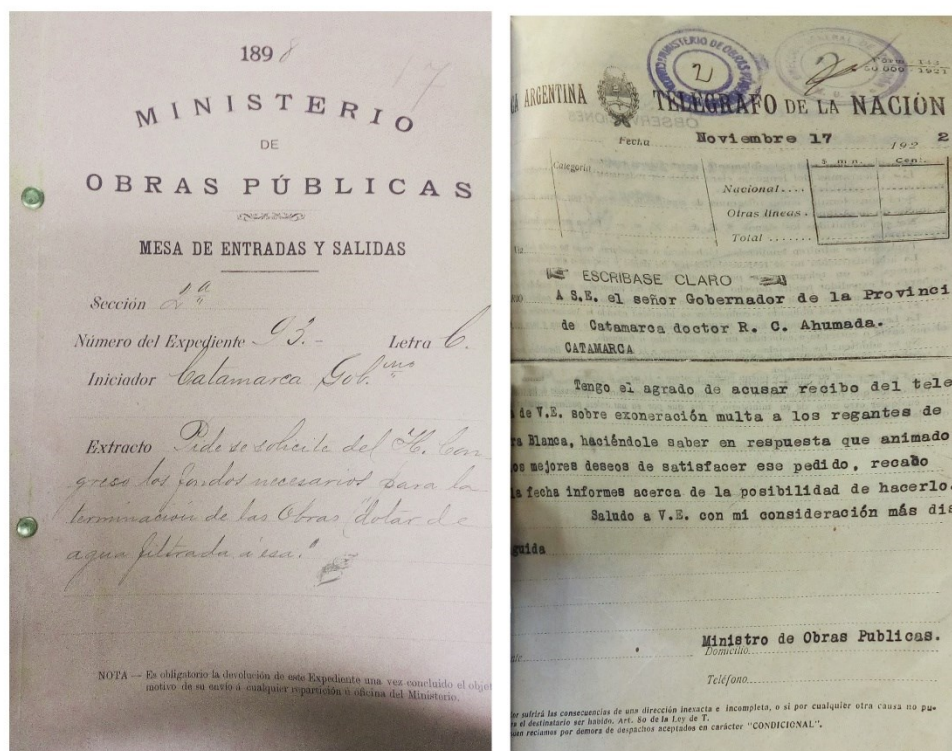 1898
17
MINISTERIO
DE
OBRAS PÚBLICAS
MESA DE ENTRADAS Y SALIDAS
Sección 2ª
Número del Expediente 93.- Letra C.
Iniciador Catamarca Gob.no
Extracto Pide se solicite del H. Con
greso los fondos necesarios para la
terminacion de las Obras "dotar de
agua filtrada á esa."
NOTA — Es obligatorio la devolución de este Expediente una vez concluido el objet
motivo de su envío á cualquier repartición ú oficina del Ministerio.
MINISTERIO DE OBRAS
2
60 000 - 1921
ARGENTINA
TELÉGRAFO DE LA NACIÓN
OBSERVACIONES
Fecha Noviembre 17 192 2
Categoría
$ m n. Cent.
Nacional....
Otras líneas.
Total.......
ESCRIBASE CLARO
A S.E. el señor Gobernador de la Provinci
de Catamarca doctor R. C. Ahumada.
CATAMARCA
Tengo el agrado de acusar recibo del tele
de V.E. sobre exoneración multa a los regantes de
ra Blanca, haciéndole saber en respuesta que animado
os mejores deseos de satisfacer ese pedido, recabo
la fecha informes acerca de la posibilidad de hacerlo.
Saludo a V.E. con mi consideración más dis
guida
Ministro de Obras Publicas.
Domicilio
Teléfono
sufrirá las consecuencias de una dirección inexacta e incompleta, o si por cualquier otra causa no pu-
el destinatario ser habido. Art. 80 de la Ley de T.
reclamos por demora de despachos aceptados en carácter "CONDICIONAL".